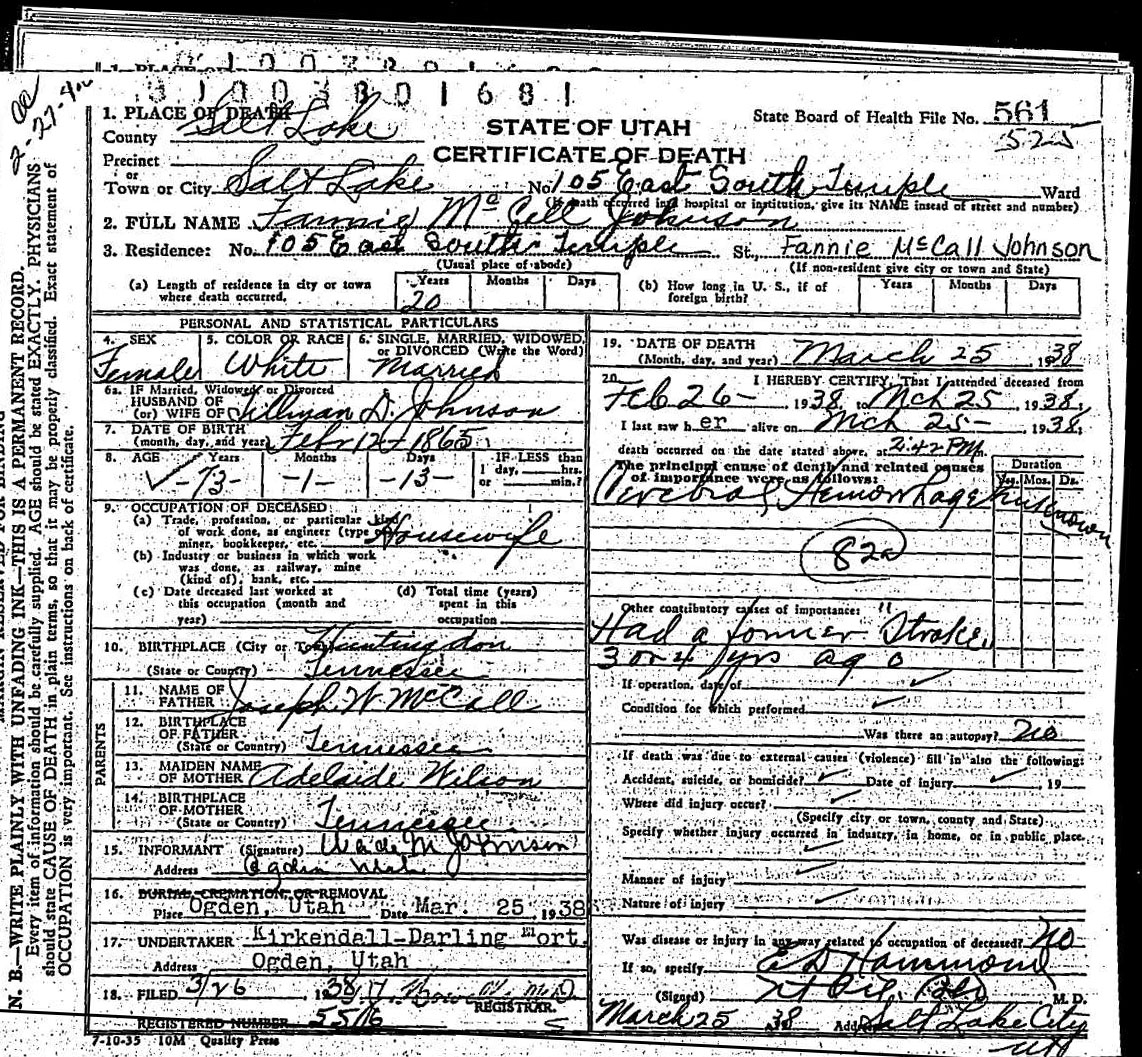 3 1 0 0 3 8 0 1 6 8 1
State Board of Health File No. 561
525
STATE OF UTAH
CERTIFICATE OF DEATH
1. PLACE OF DEATH
County Salt Lake
Precinct
or
Town or City Salt Lake No. 105 East South Temple Ward
(If death occurred in hospital or institution, give its NAME insead of street and number)
2. FULL NAME Fannie McCall Johnson
3. Residence: No. 105 East South Temple St., Fannie McCall Johnson
(Usual place of abode) (If non-resident give city or town and State)
(a) Length of residence in city or town where death occurred. Years 20 Months Days
(b) How long in U. S., if of foreign birth? Years Months Days
PERSONAL AND STATISTICAL PARTICULARS
4. SEX Female
5. COLOR OR RACE White
6. SINGLE, MARRIED, WIDOWED, or DIVORCED (Write the Word) Married
6a. IF Married, Widowed or Divorced
HUSBAND OF
(or) WIFE OF Tillman D. Johnson
7. DATE OF BIRTH
(month, day, and year) Febr 12 - 1865
8. AGE Years Months Days IF LESS than
73 - 1 - 13 - 1 day, hrs.
or min.?
9. OCCUPATION OF DECEASED
(a) Trade, profession, or particular kind
of work done, as engineer (type
miner, bookkeeper, etc. Housewife
(b) Industry or business in which work
was done, as railway, mine
(kind of), bank, etc.
(c) Date deceased last worked at
this occupation (month and
year)
(d) Total time (years)
spent in this
occupation
10. BIRTHPLACE (City or Town) Huntingdon
(State or Country) Tennessee
PARENTS
11. NAME OF
FATHER Joseph W McCall
12. BIRTHPLACE
OF FATHER
(State or Country) Tennessee
13. MAIDEN NAME
OF MOTHER Adelaide Wilson
14. BIRTHPLACE
OF MOTHER
(State or Country) Tennessee
15. INFORMANT (Signature) Wade M Johnson
Address Ogden Utah
16. BURIAL, CREMATION, OR REMOVAL
Place Ogden, Utah Date Mar. 25, 1938
17. UNDERTAKER Kirkendall-Darling Mort.
Address Ogden, Utah
18. FILED 3/26 1938
REGISTRAR.
REGISTERED NUMBER 5516
7-10-35 10M Quality Press
19. DATE OF DEATH
(Month, day, and year) March 25 1938
20. I HEREBY CERTIFY, That I attended deceased from
Feb 26 - 1938, to Mch 25, 1938,
I last saw her alive on Mch 25 - 1938,
death occurred on the date stated above, at 2:42 PM m.
The principal cause of death and related causes
of importance were as follows:
Duration
Yrs. Mos. Ds.
Cerebral Hemorrhage unknown
82a
Other contributory causes of importance:
Had a former "Stroke,
3 or 4 yrs ago
If operation, date of
Condition for which performed
Was there an autopsy? No
If death was due to external causes (violence) fill in also the following:
Accident, suicide, or homicide? Date of injury , 19
Where did injury occur?
(Specify city or town, county and State)
Specify whether injury occurred in industry, in home, or in public place.
Manner of injury
Nature of injury
Was disease or injury in any way related to occupation of deceased? No
If so, specify
(Signed) E D Hammond M. D.
March 25 38 Address Salt Lake City
N. B.—WRITE PLAINLY WITH UNFADING INK—THIS IS A PERMANENT RECORD.
Every item of information should be carefully supplied. AGE should be stated EXACTLY. PHYSICIANS
should state CAUSE OF DEATH in plain terms, so that it may be properly classified. Exact statement of
OCCUPATION is very important. See instructions on back of certificate.